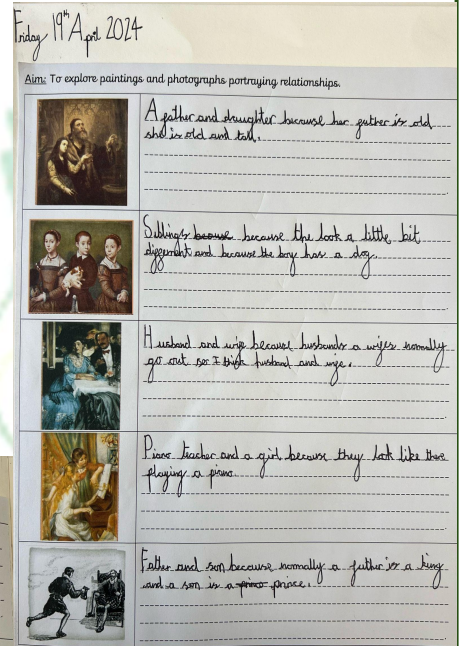 Friday 19th April 2024
Aim: To explore paintings and photographs portraying relationships.
A father and daughter because her father is old
she is old and tall.
Siblings because the look a little bit
different and because the boy has a dog.
Husband and wife because husbands a wifes normally
go out so I think husband and wife.
Piano teacher and a girl because they look like there
playing a piano.
Father and son because normally a father is a king
and a son is a prince.